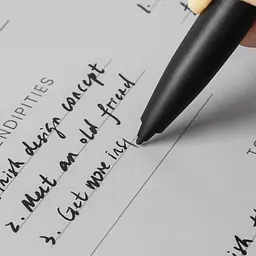 NDIPITIES
nish design concept
2. Meet an old friend
3. Get more ins